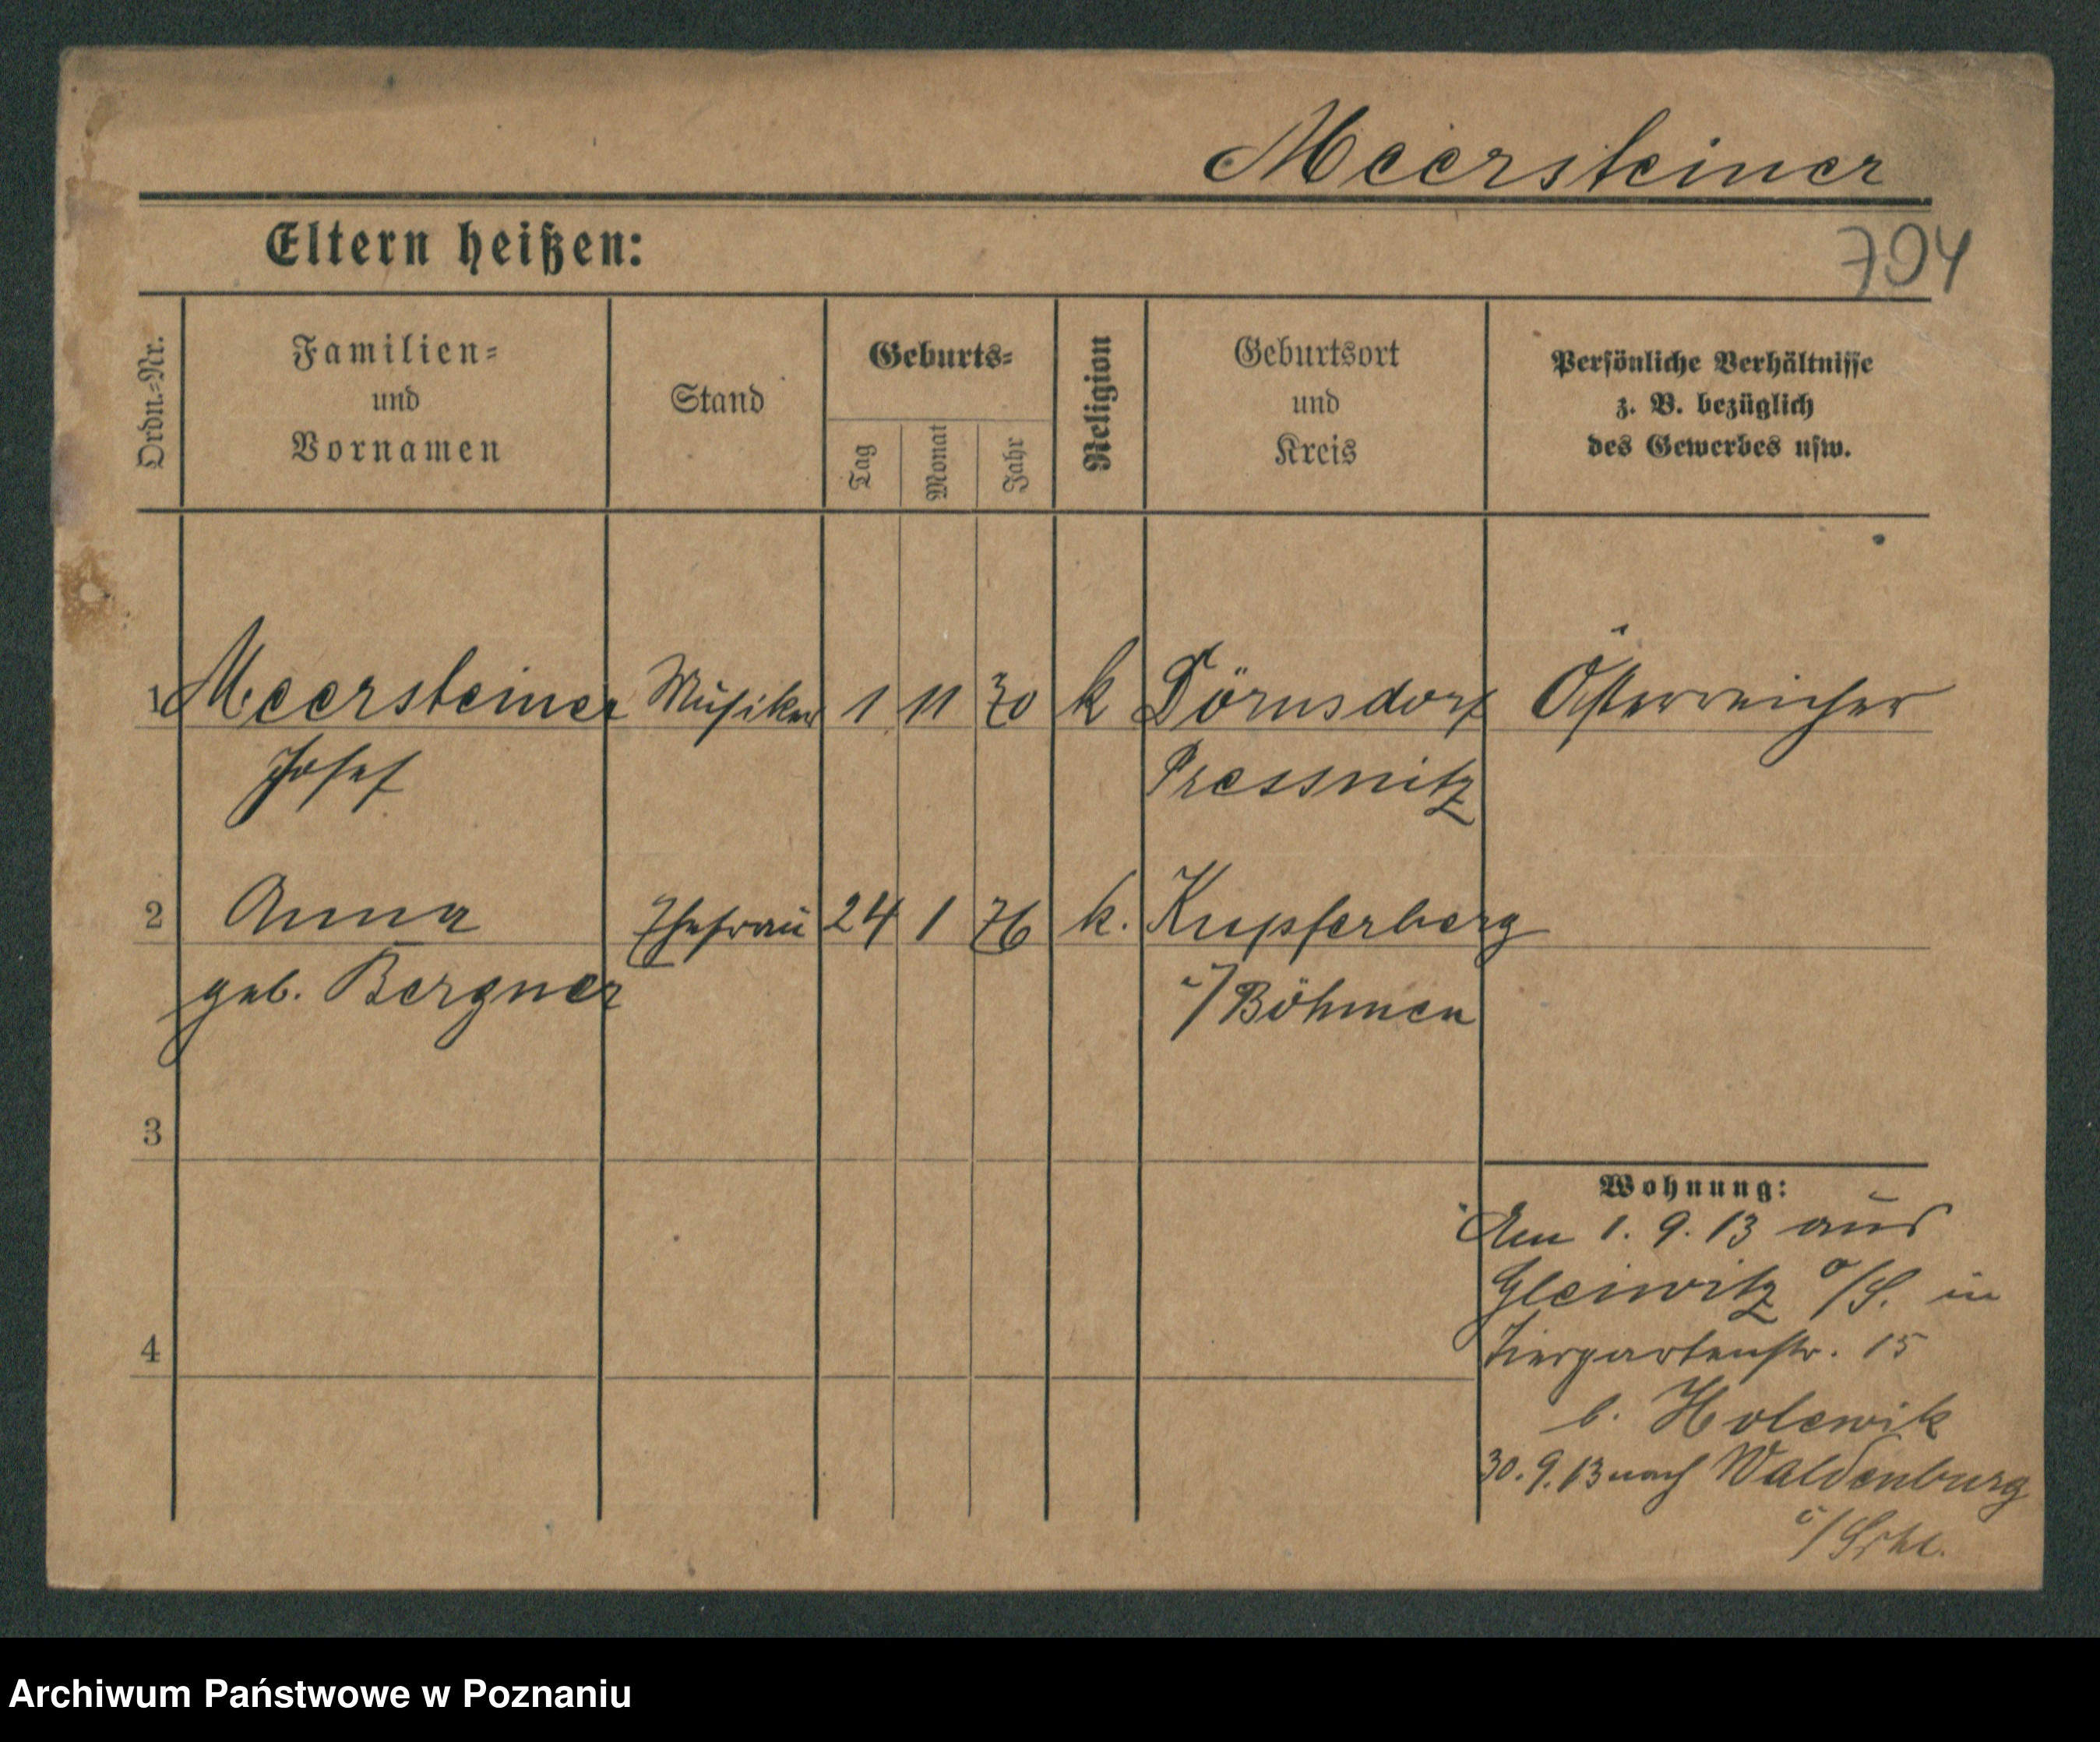 Meersteiner
Eltern heißen:
794
Ordn.-Nr.
Familien-
und
Vornamen
Stand
Geburts-
Tag
Monat
Jahr
Religion
Geburtsort
und
Kreis
Persönliche Verhältnisse
z. B. bezüglich
des Gewerbes usw.
1 Meersteiner Musiker 1 11 70 k Dörnsdorf Österreicher
Josef Pressnitz
2 Anna Ehefrau 24 1 76 k. Kupferberg
geb. Bergner i/Böhmen
3
4
Wohnung:
Am 1. 9. 13 aus
Gleiwitz o/S. in
Tiergartenstr. 15
b. Holewik
30. 9. 13 nach Waldenburg
i/Schl.
Archiwum Państwowe w Poznaniu